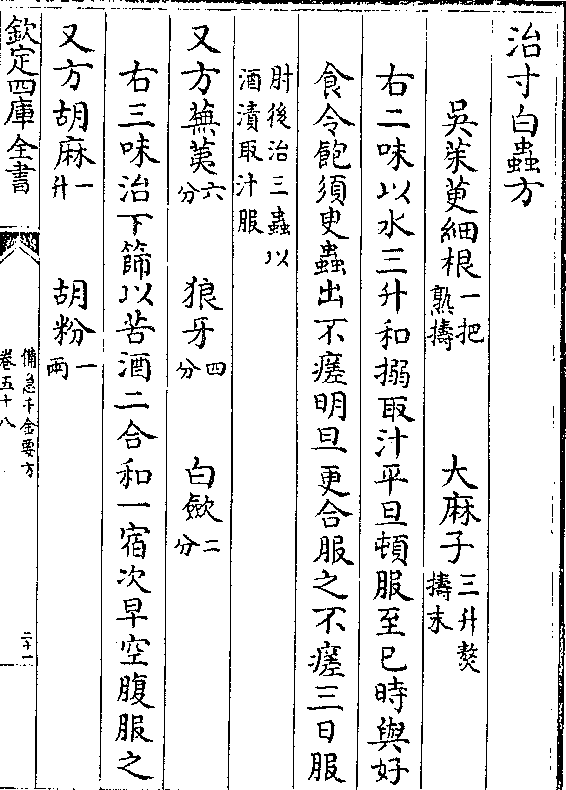 治寸白蟲方
吳茱萸細根一把熟擣　大麻子三升熬擣末
右二味以水三升和搦取汁平旦頓服至巳時與好
食令飽須臾蟲出不瘥明旦更合服之不瘥三日服
肘後治三蟲以酒漬取汁服
又方蕪荑六分　狼牙四分　白歛二分
右三味治下篩以苦酒二合和一宿次早空腹服之
又方胡麻一升　胡粉一兩
欽定四庫全書
備急千金要方
卷五十八
二十一